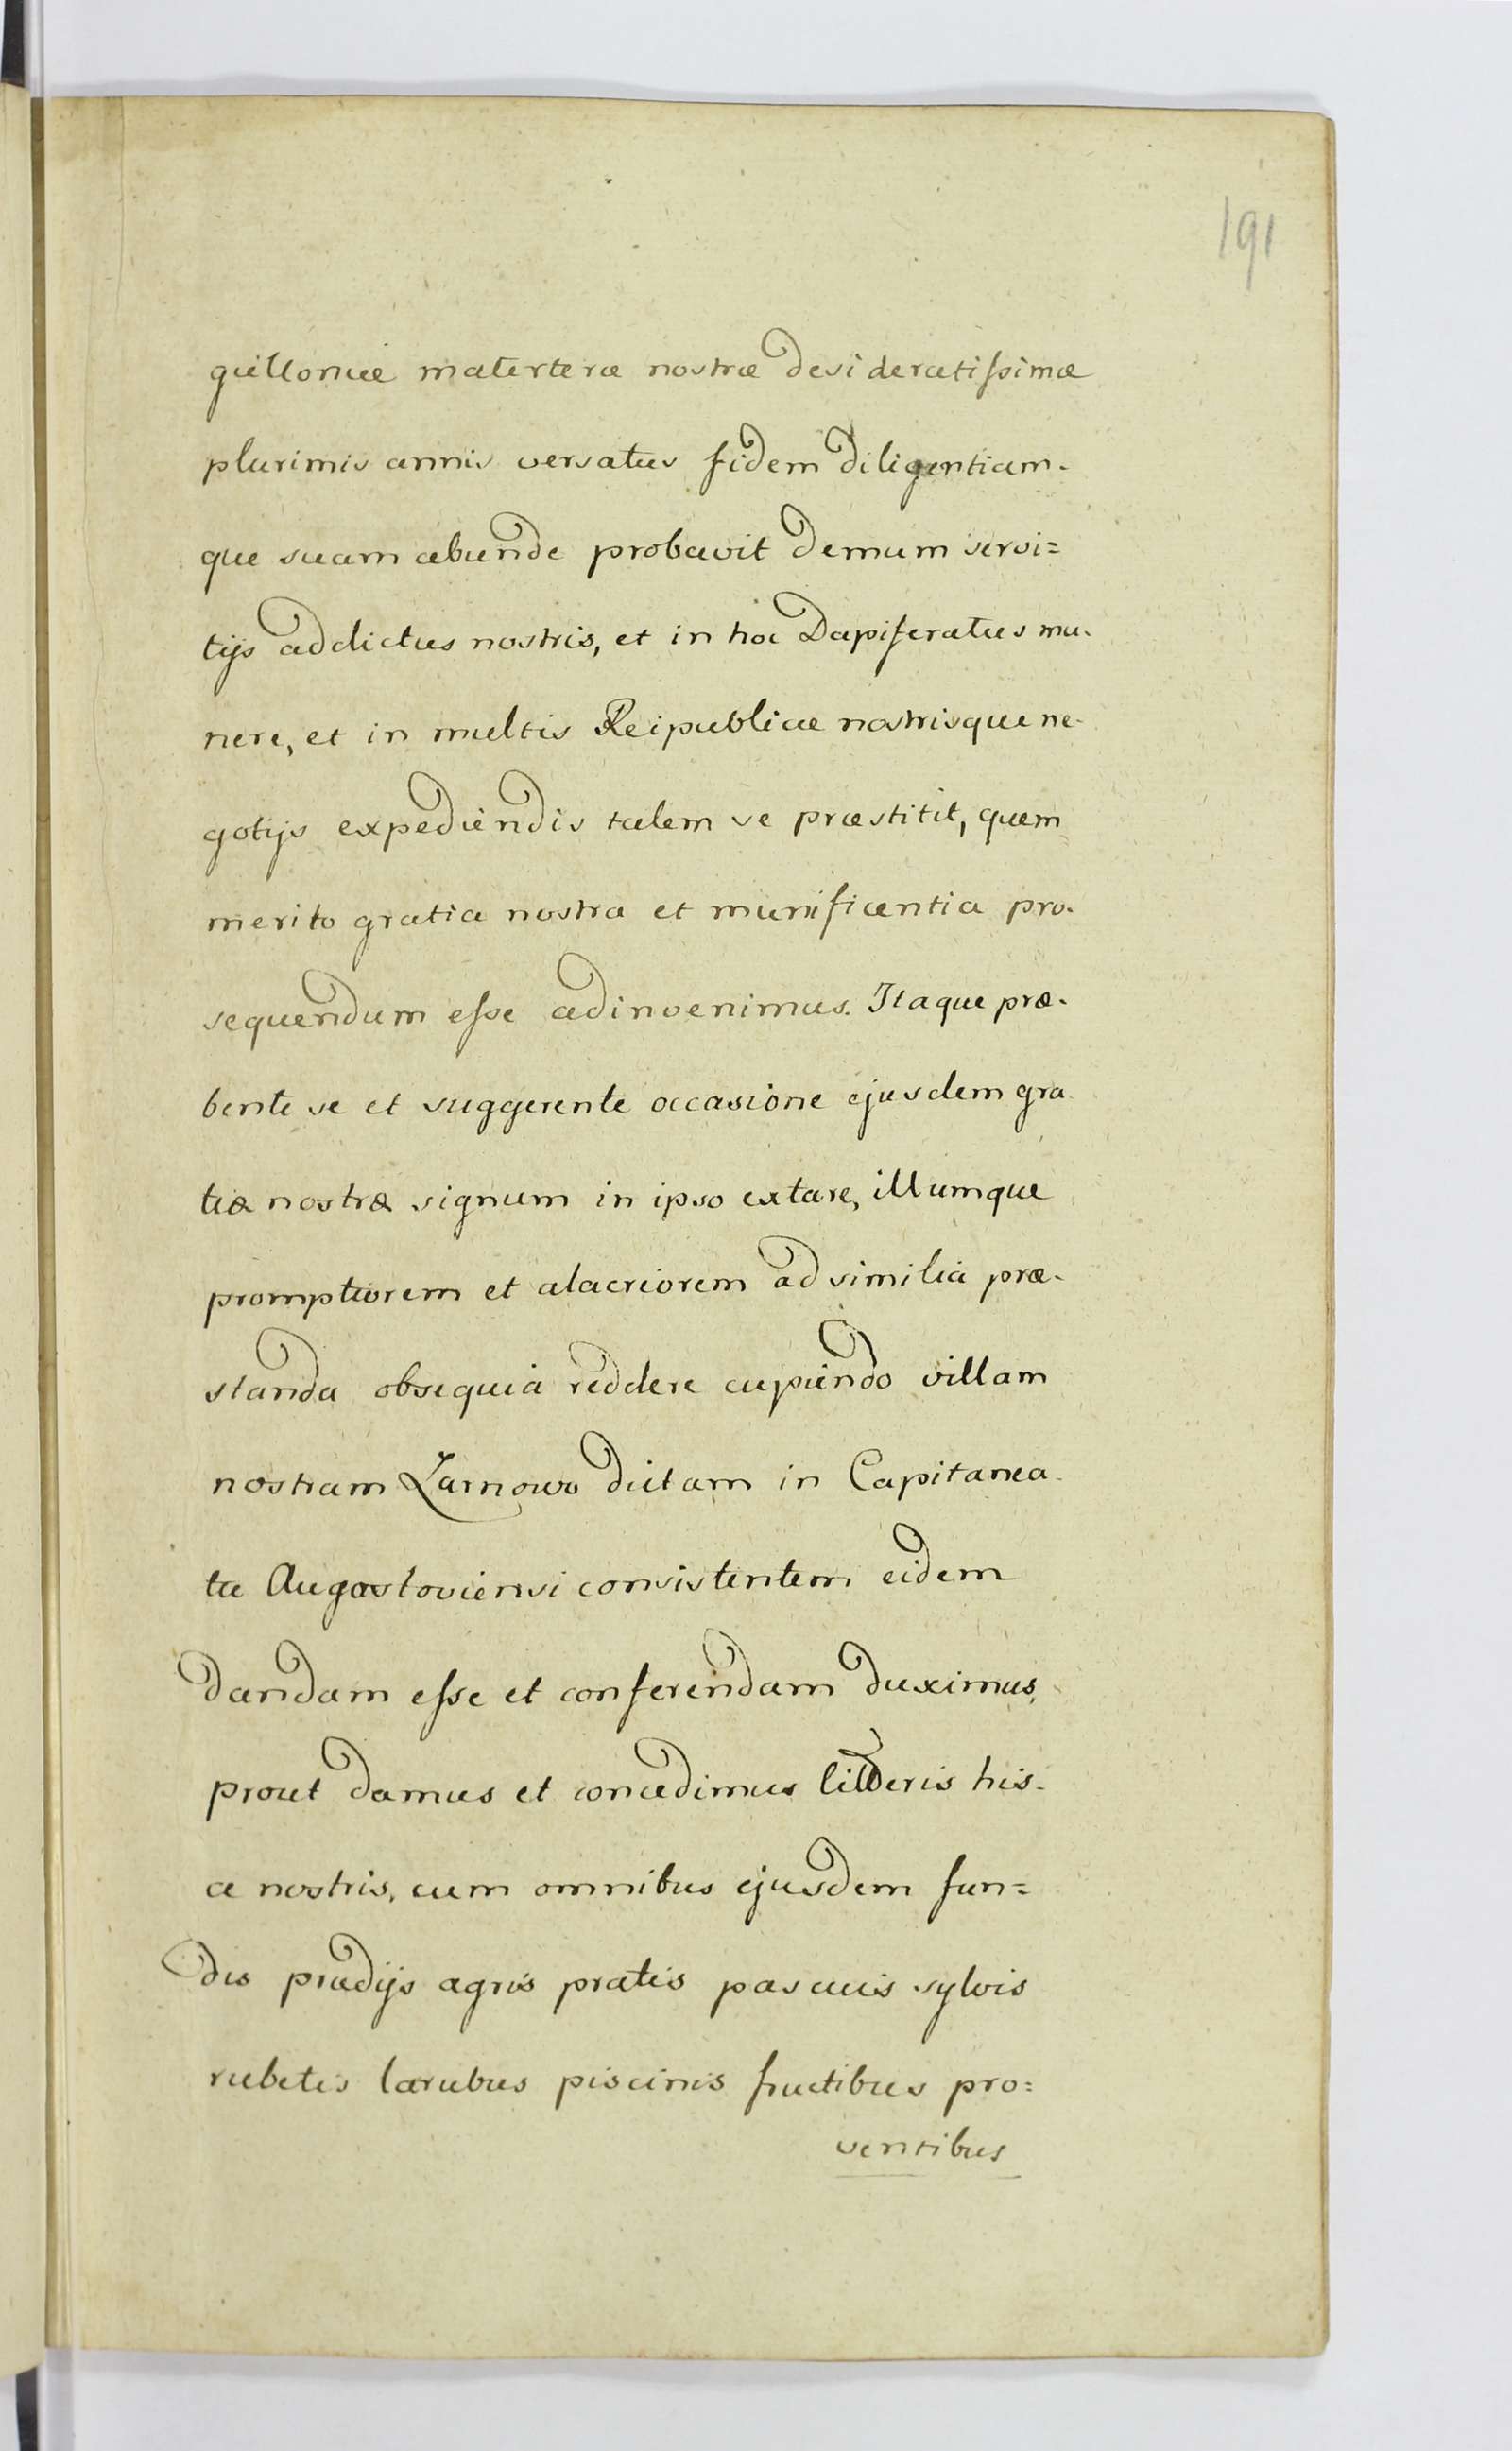 191
guelloniæ materteræ nostræ desideratissimæ
plurimis annis versatus fidem diligentiam-
que suam abunde probavit demum servi=
tijs addictus nostris, et in hoc Dapiferatus mu-
nere, et in multis Reipublicæ nostrisque ne-
gotijs expediendis talem se præstitit, quem
merito gratia nostra et munificentia pro-
sequendum esse adinvenimus. Itaque præ-
bente se et suggerente occasione ejusdem gra
tiæ nostræ signum in ipso extare, illumque
promptiorem et alacriorem ad similia præ-
standa obsequia reddere cupiendo villam
nostram Żarnowo dictam in Capitanea-
tu Augostoviensi consistentem eidem
dandam esse et conferendam duximus,
prout damus et concedimus litteris his-
ce nostris, cum omnibus ejusdem fun=
dis prædijs agris pratis pascuis sylvis
rubetis lacubus piscinis fructibus pro=
ventibus